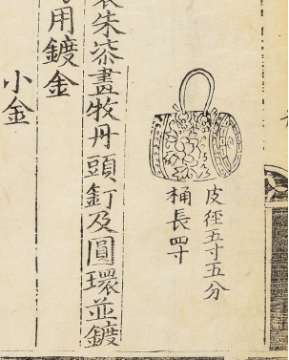 皮徑五寸五分
桶長四寸
朱漆畫牧丹頭釘及圓環並鍍
用鍍金
小金